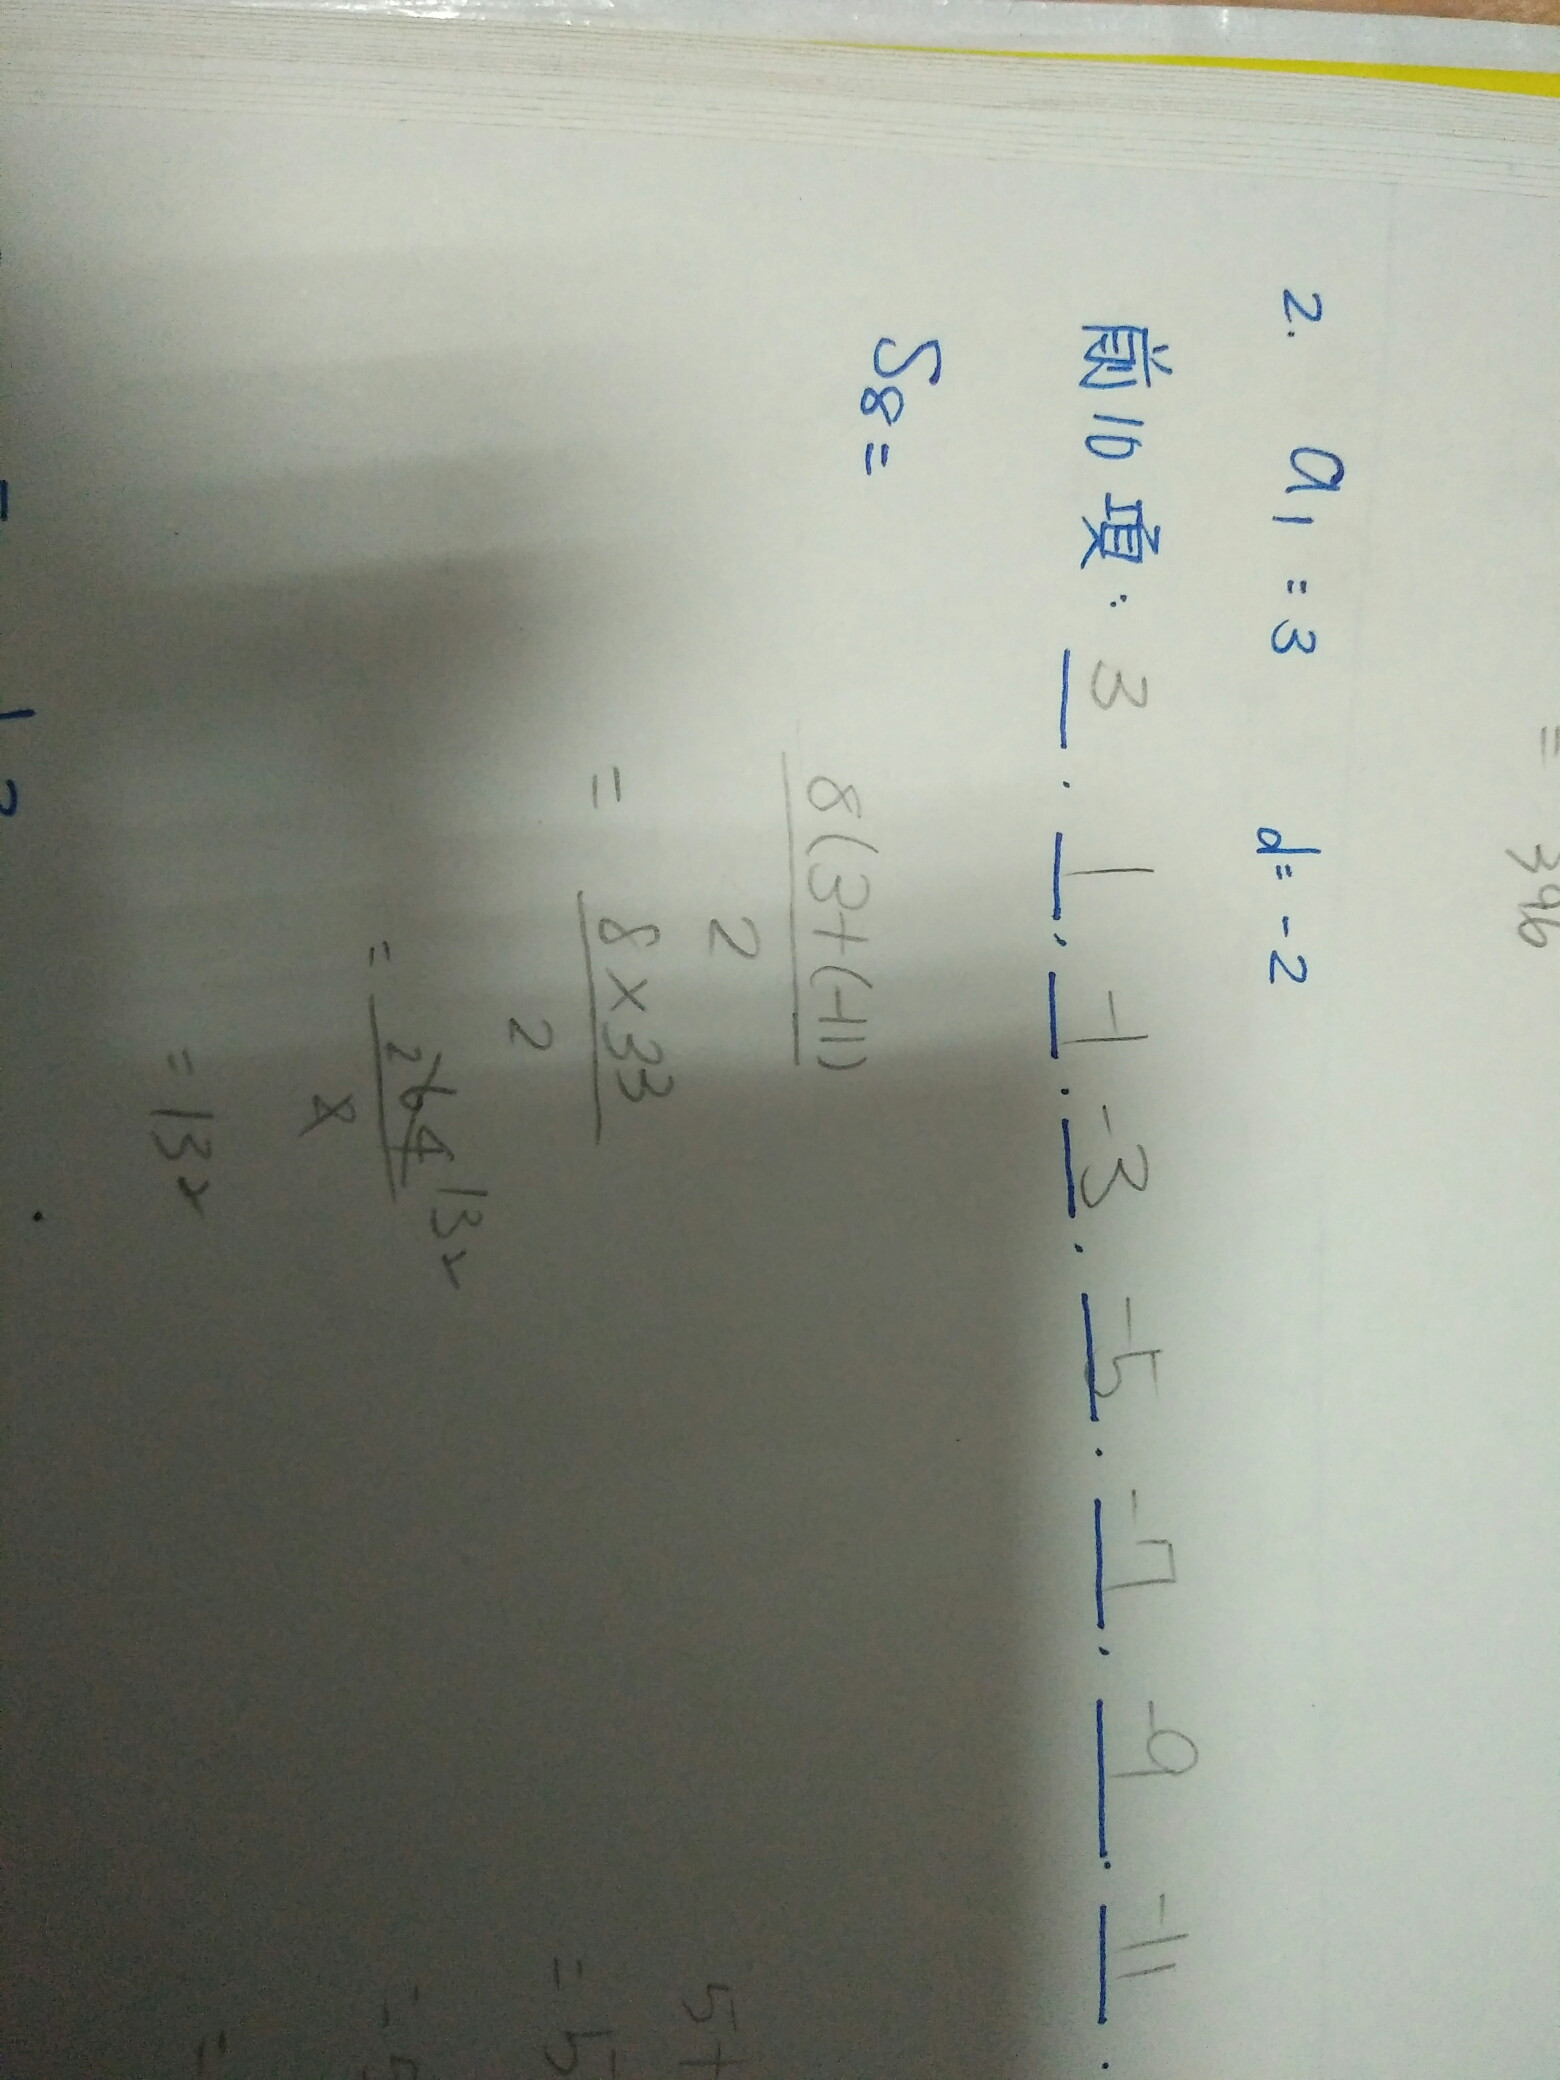 = 396
2. a1 = 3 d = -2
前10項: 3 . 1 . -1 . -3 . -5 . -7 . -9 . -11 .
S8 =
8(3+(-11)
2
= 8×33
2
= 264 132
2
= 132
5+
= 5